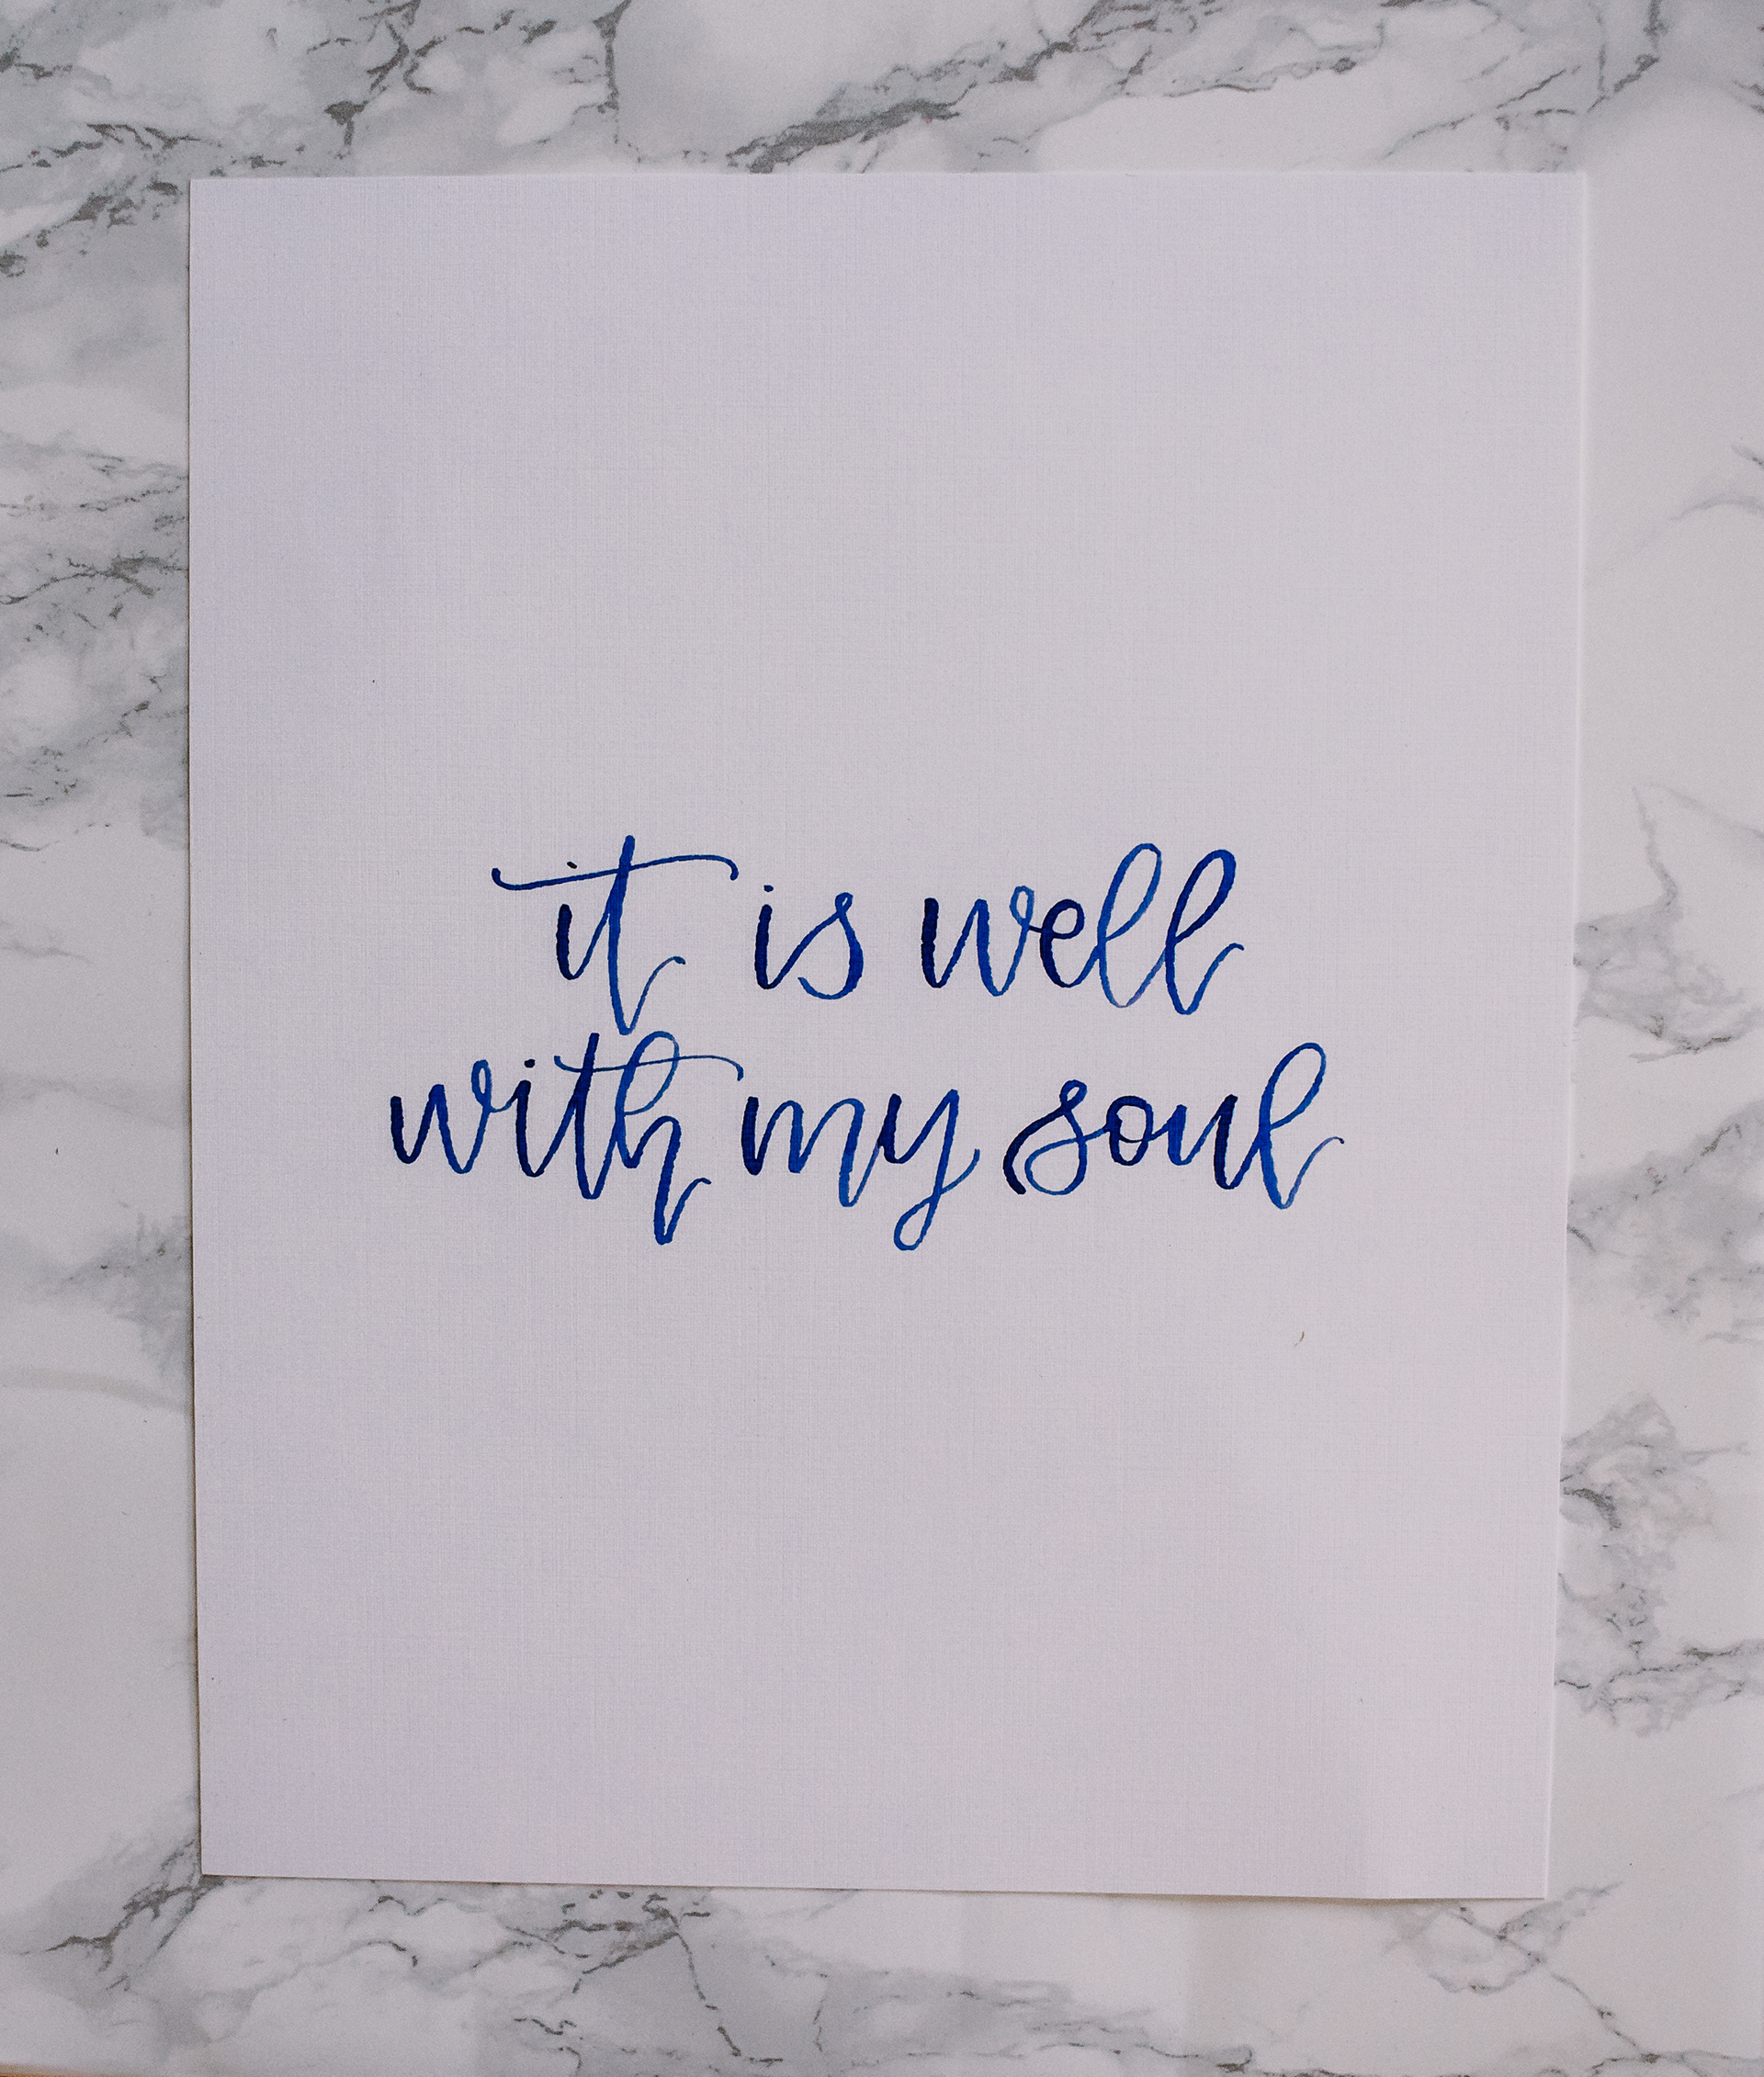 it is well
with my soul